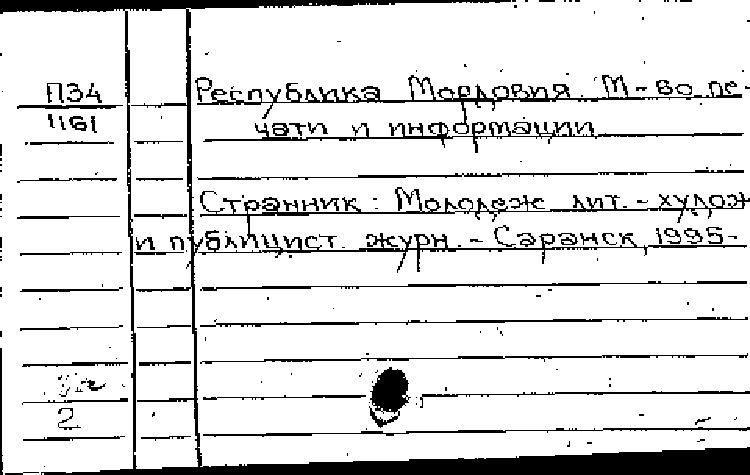 П34 Республика Мордовия. М-во пе-
1161 чати и информации
Странник: Молодеж лит.-худож
и публицист. журн. - Саранск, 1995-
2